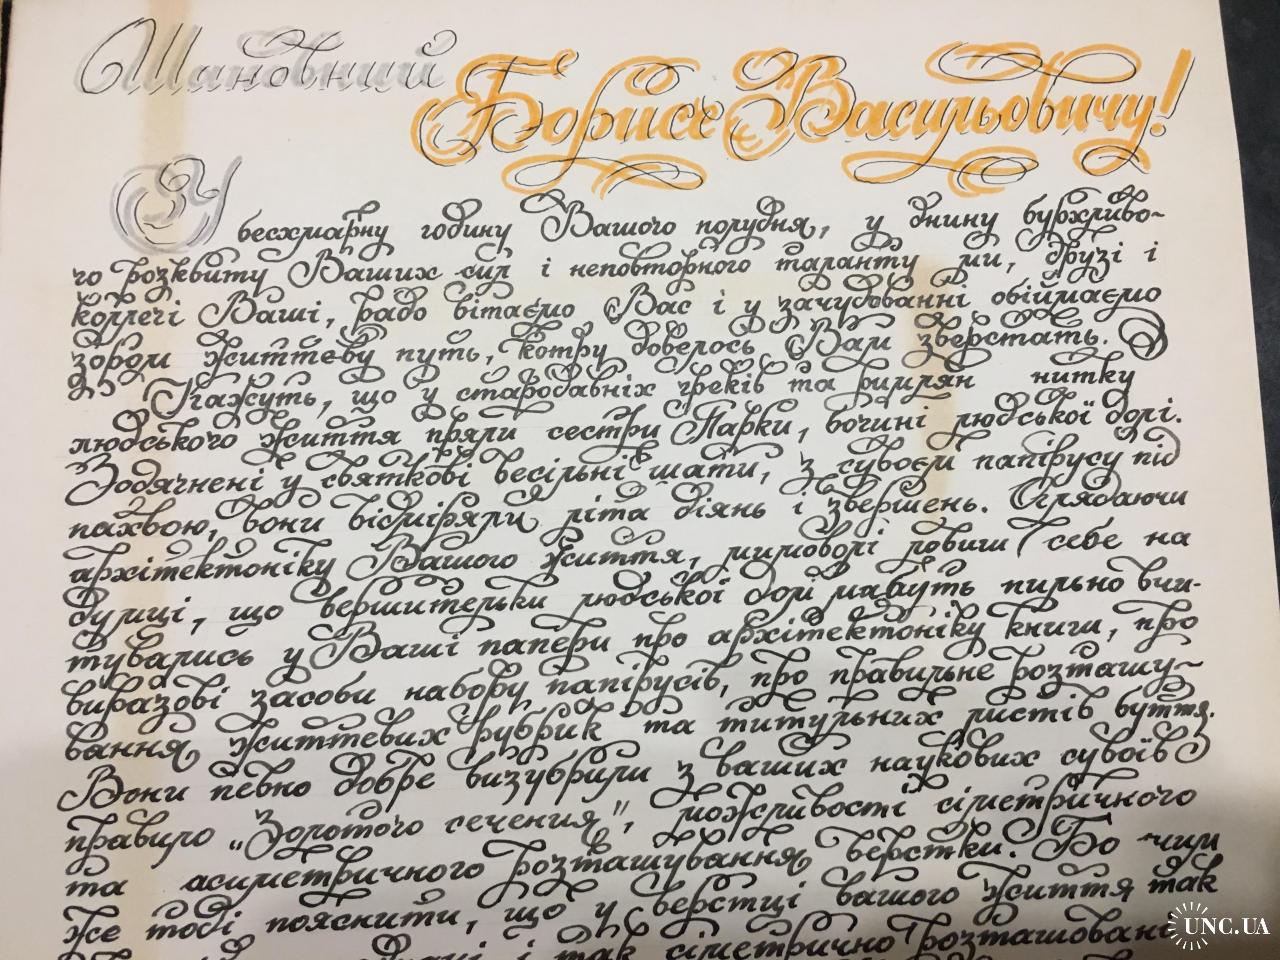 Шановний
Борисе Васильовичу!
У безхмарну годину Вашого полудня, у днину бурхливо-
го розквиту Ваших сил і неповторного таланту ми, друзі і
коллегі Ваші, радо вітаємо Вас і у зачудованні обіймаємо
зором життєву путь, котру довелось Вам зверстать.
Кажуть, що у стародавніх греків та римлян нитку
людського життя пряли сестри Парки, богині людської долі.
Зодягнені у святкові весільні шати, з сувоєм папірусу під
пахвою, вони відміряли літа діянь і звершень. Оглядаючи
архітектоніку Вашого життя, мимоволі ловиш себе на
думці, що вершительки людської долі мабуть пильно вчи-
тувались у Ваші папери про архітектоніку книги, про
виразові засоби набору папірусів, про правильне розташу-
вання життєвих рубрик та титульних листів буття.
Вони певно добре визубрили з ваших наукових сувоїв
правило „Золотого сечения", можливості сіметричного
та асиметричного розташування верстки. Бо чим
же тоді пояснити, що у верстці вашого життя так
і так сіметрично розташовані
UNC.UA